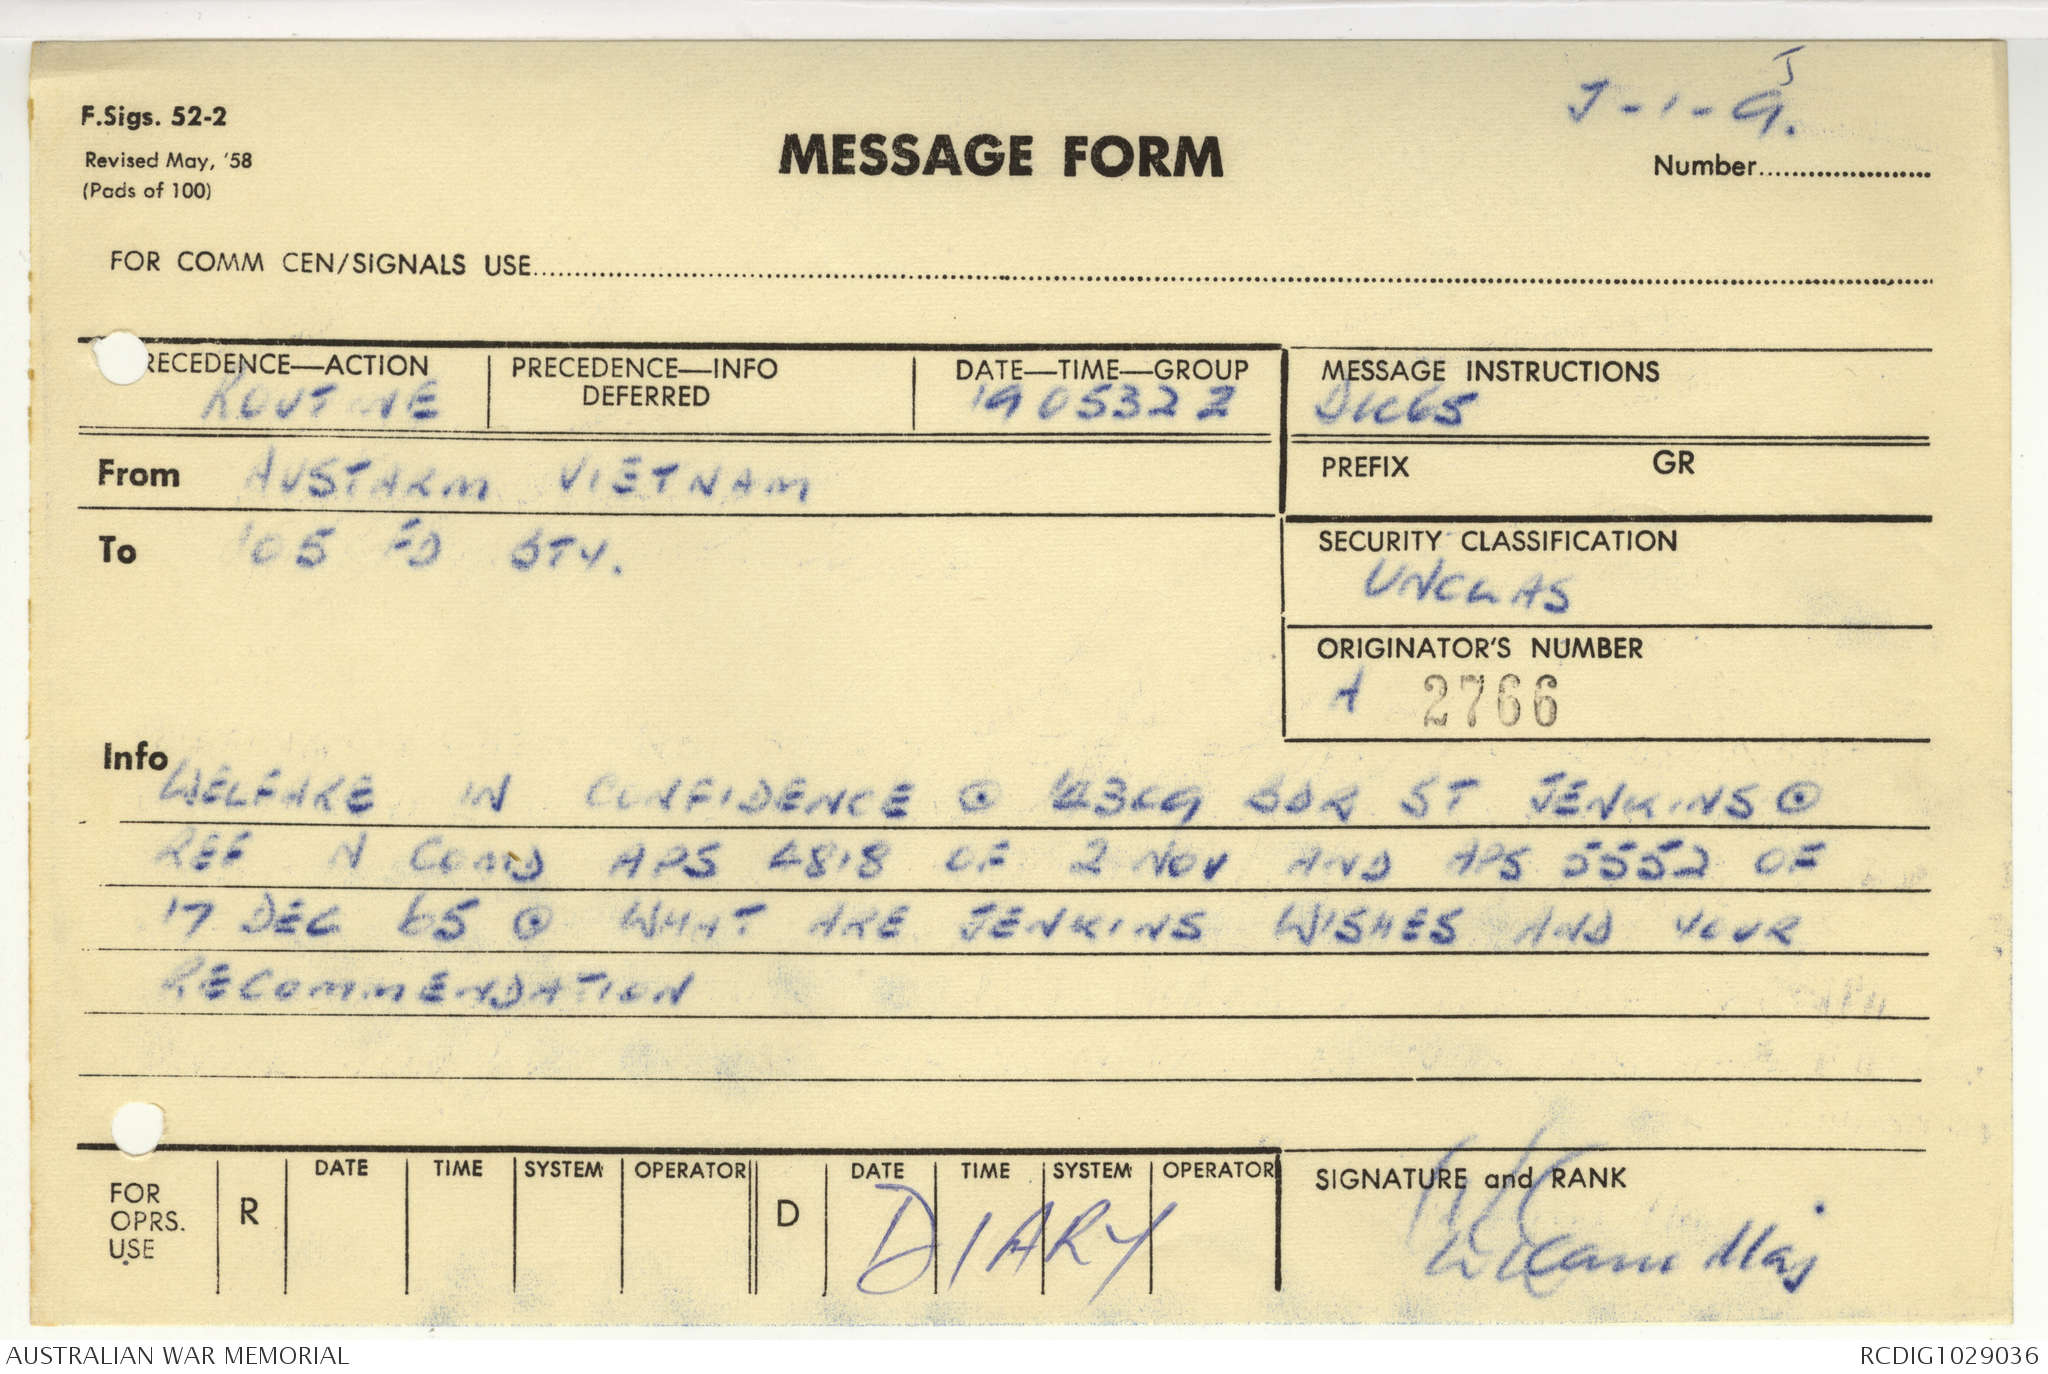 F.Sigs. 52-2
Revised May, '58
(Pads of 100)
J
J-1-9.
MESSAGE FORM
Number
FOR COMM CEN/SIGNALS USE
RECEDENCE—ACTION
ROUTINE
PRECEDENCE—INFO
DEFERRED
DATE—TIME—GROUP
190532Z
MESSAGE INSTRUCTIONS
From AUSTARM VIETNAM
PREFIX GR
To 105 FD BTY.
SECURITY CLASSIFICATION
UNCLAS
ORIGINATOR'S NUMBER
A 2766
Info
WELFARE IN CONFIDENCE ⊙ BDR ST JENKINS ⊙
REF N COMD APS 4818 OF 2 NOV AND APS 5552 OF
17 DEC 65 ⊙ WHAT ARE JENKINS WISHES AND YOUR
RECOMMENDATION
FOR
OPRS.
USE
R
DATE TIME SYSTEM OPERATOR
D
DATE TIME SYSTEM OPERATOR
DIARY
SIGNATURE and RANK
Maj
AUSTRALIAN WAR MEMORIAL
RCDIG1029036